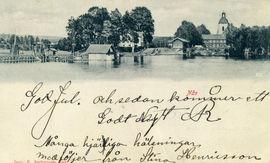 Näs
God Jul. och sedan kommer ett
Godt Nytt År
Många hjärtliga hälsningar
medföljer från Stina Henriksson